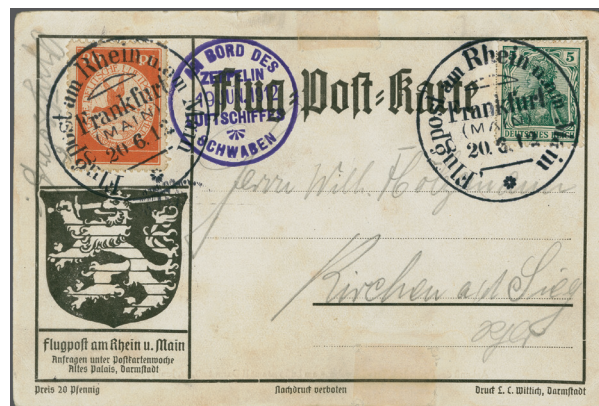 Flug=Post=Karte
Flugpost am Rhein u. am Main
Frankfurt
(MAIN)
20.6.12
AN BORD DES
ZEPPELIN
LUFTSCHIFFES
SCHWABEN
Flugpost am Rhein u. am Main
Frankfurt
(MAIN)
20.6.12
5
DEUTSCHES REICH
Herrn Will.
Kirchen a/d Sieg
Flugpost am Rhein u. Main
Anfragen unter Postkartenwoche
Altes Palais, Darmstadt
Preis 20 Pfennig
Nachdruck verboten
Druck L. C. Wittich, Darmstadt